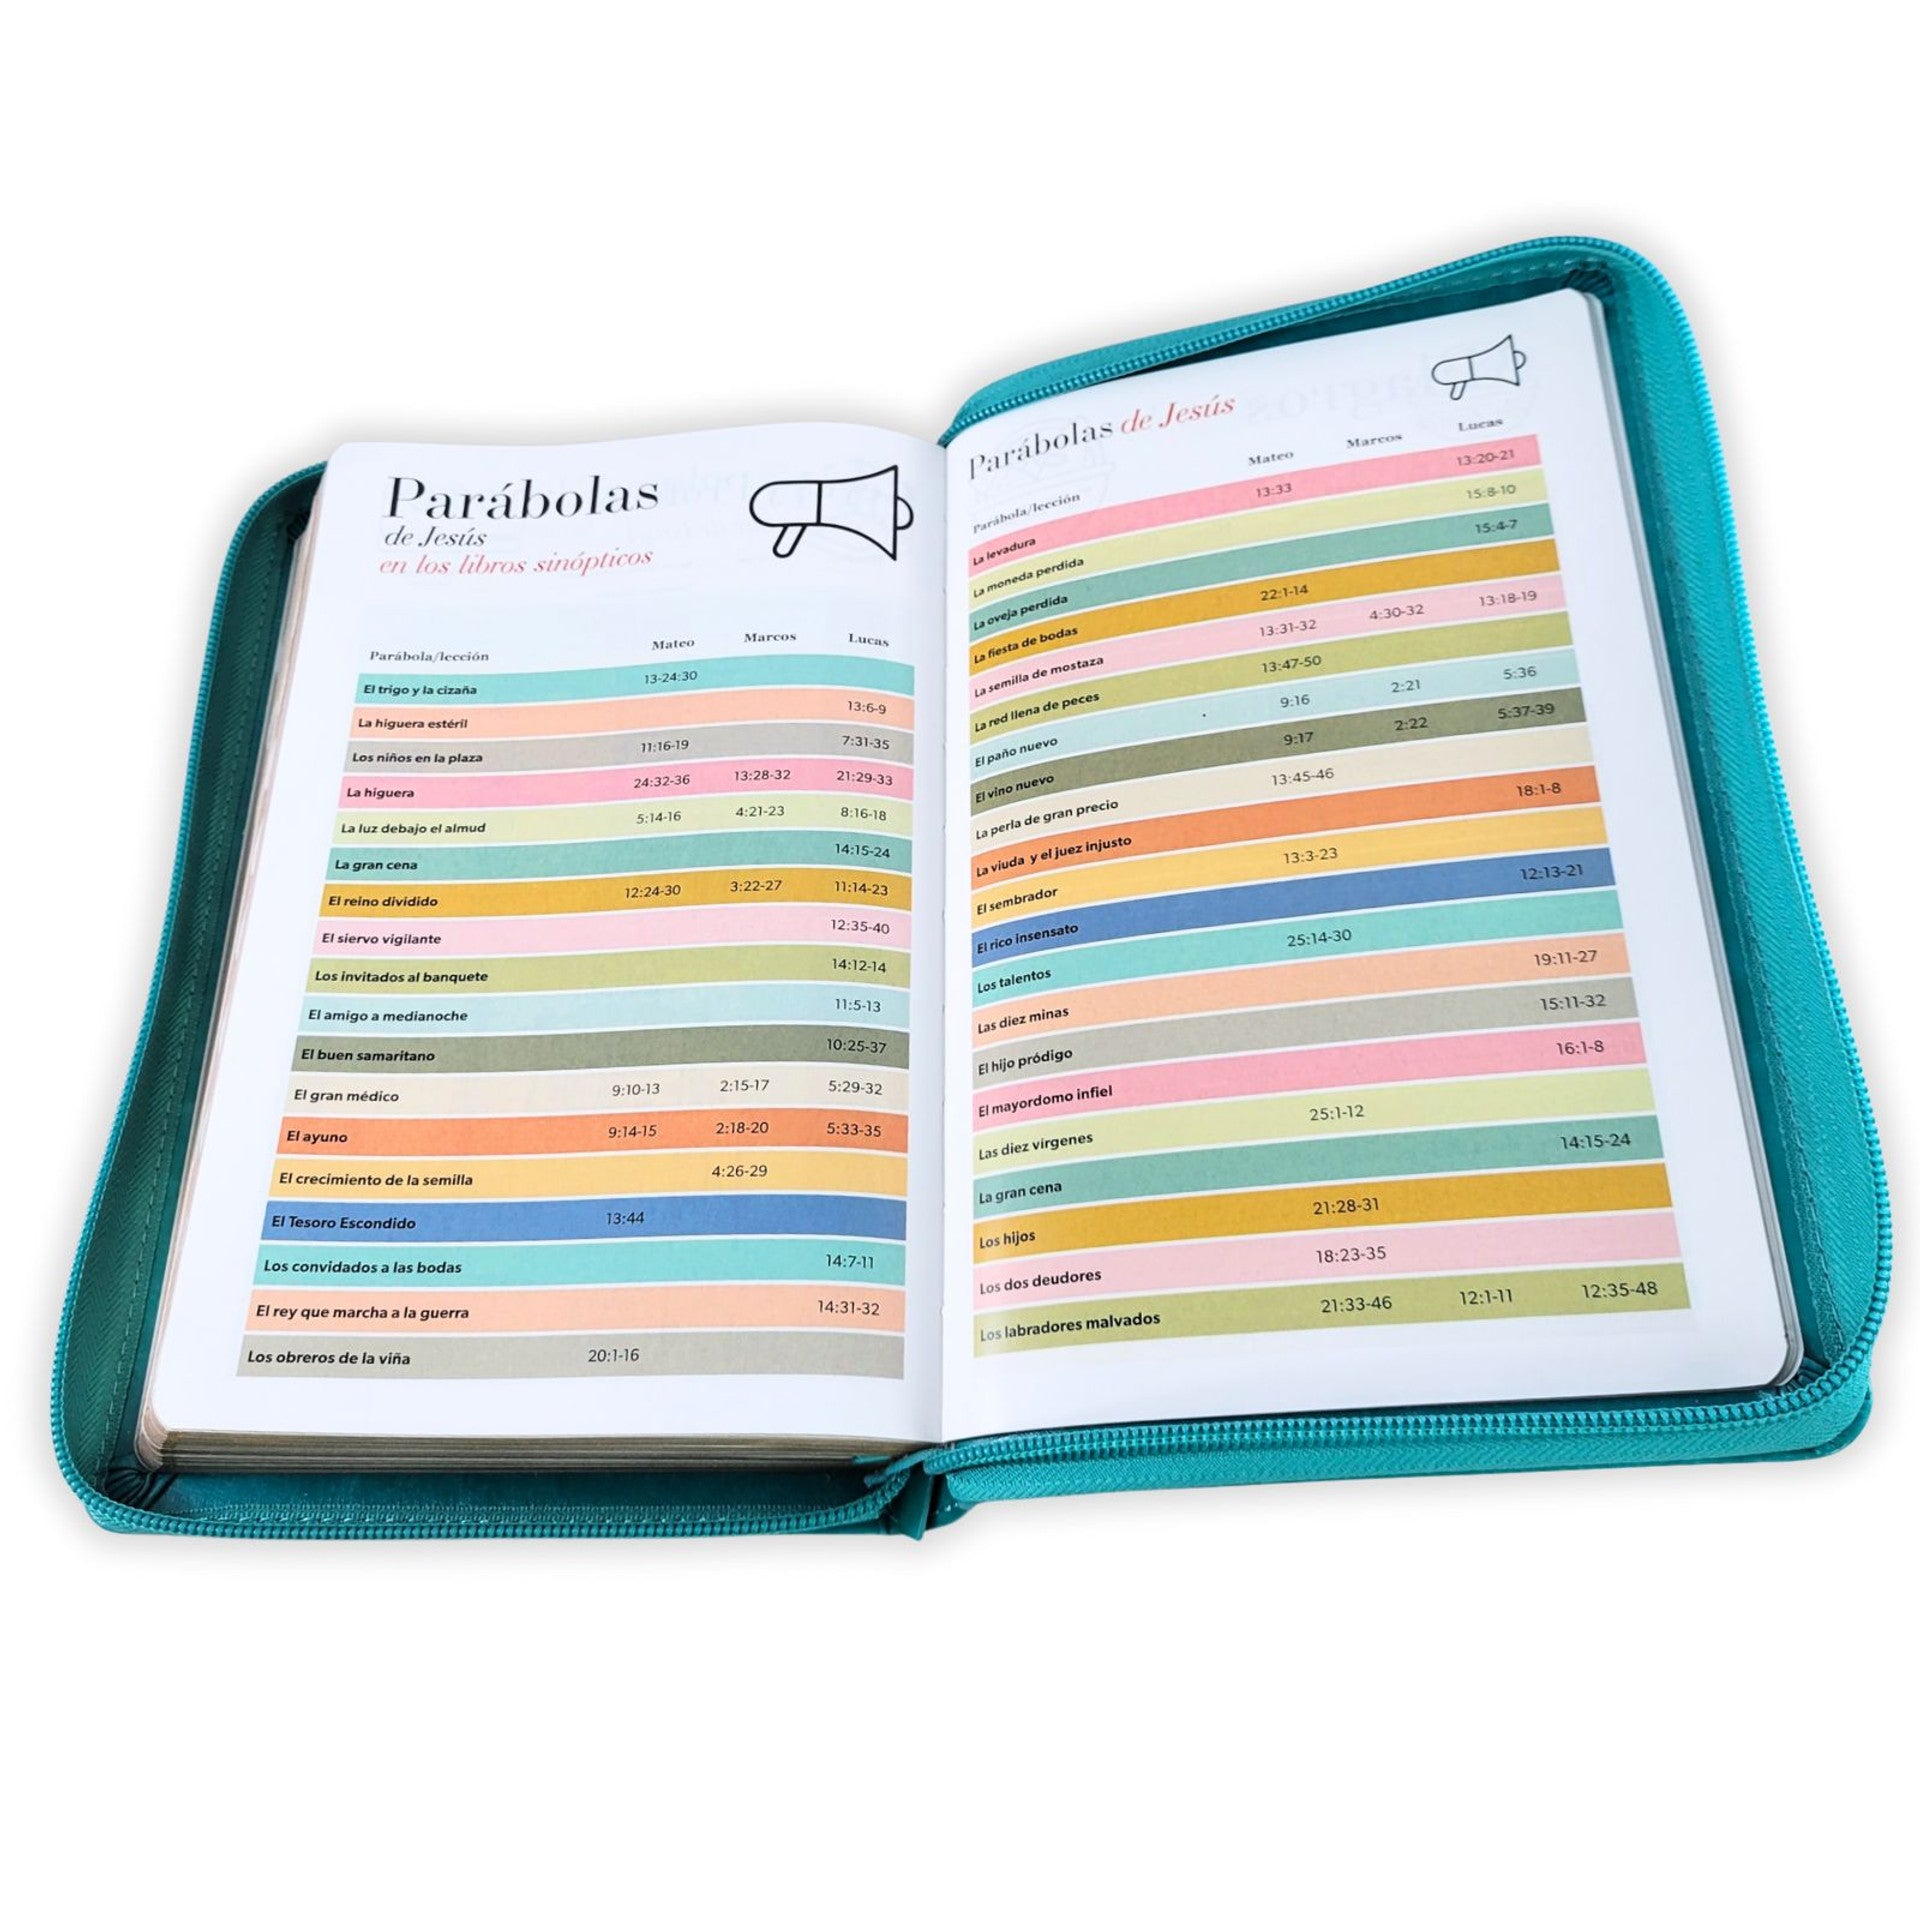 Parábolas
de Jesús
en los libros sinópticos
Parábola/lección Mateo Marcos Lucas
El trigo y la cizaña 13-24:30
La higuera estéril 13:6-9
Los niños en la plaza 11:16-19 7:31-35
La higuera 24:32-36 13:28-32 21:29-33
La luz debajo el almud 5:14-16 4:21-23 8:16-18
La gran cena 14:15-24
El reino dividido 12:24-30 3:22-27 11:14-23
El siervo vigilante 12:35-40
Los invitados al banquete 14:12-14
El amigo a medianoche 11:5-13
El buen samaritano 10:25-37
El gran médico 9:10-13 2:15-17 5:29-32
El ayuno 9:14-15 2:18-20 5:33-35
El crecimiento de la semilla 4:26-29
El Tesoro Escondido 13:44
Los convidados a las bodas 14:7-11
El rey que marcha a la guerra 14:31-32
Los obreros de la viña 20:1-16
Parábolas de Jesús
Parábola/lección Mateo Marcos Lucas
La levadura 13:33 13:20-21
La moneda perdida 15:8-10
La oveja perdida 15:4-7
La fiesta de bodas 22:1-14
La semilla de mostaza 13:31-32 4:30-32 13:18-19
La red llena de peces 13:47-50
El paño nuevo 9:16 2:21 5:36
El vino nuevo 9:17 2:22 5:37-39
La perla de gran precio 13:45-46
La viuda y el juez injusto 18:1-8
El sembrador 13:3-23
El rico insensato 12:13-21
Los talentos 25:14-30
Las diez minas 19:11-27
El hijo pródigo 15:11-32
El mayordomo infiel 16:1-8
Las diez vírgenes 25:1-12
La gran cena 14:15-24
Los hijos 21:28-31
Los dos deudores 18:23-35
Los labradores malvados 21:33-46 12:1-11 12:35-48